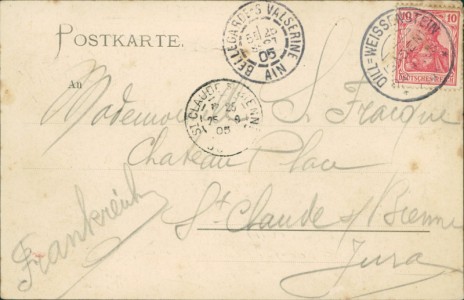 POSTKARTE.
BELLEGARDE-S-VALSERINE
05
AIN
DILL=WEISSENSTEIN
10
DEUTSCHES REICH
ST CLAUDE S. BIENNE
25
05
An
Mademoiselle S.
Chateau Place
St Claude s/Bienne
Jura
Frankreich